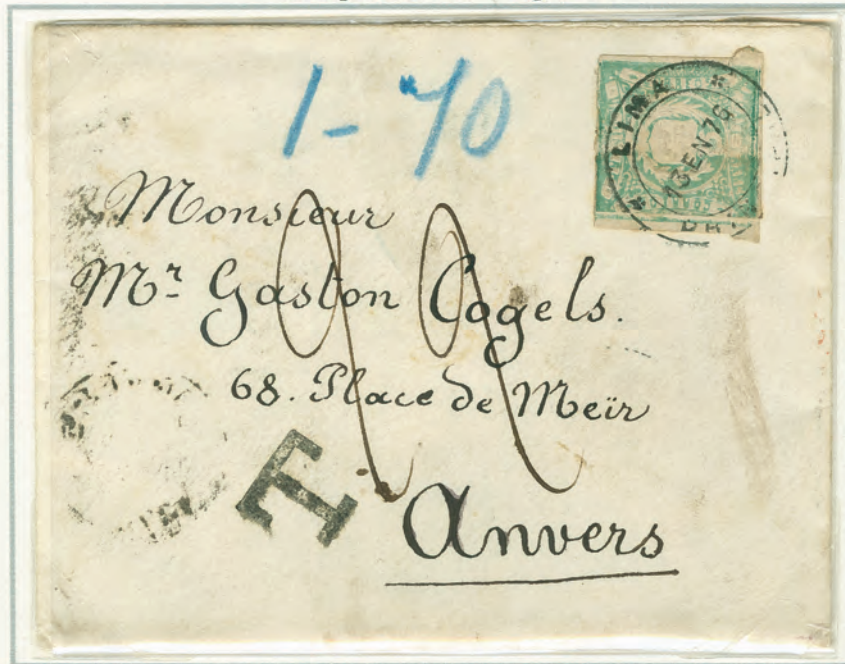 1-70
LIMA
13 EN 76
Monsieur
Mr Gaston Cogels.
68. Place de Meïr
T
Anvers